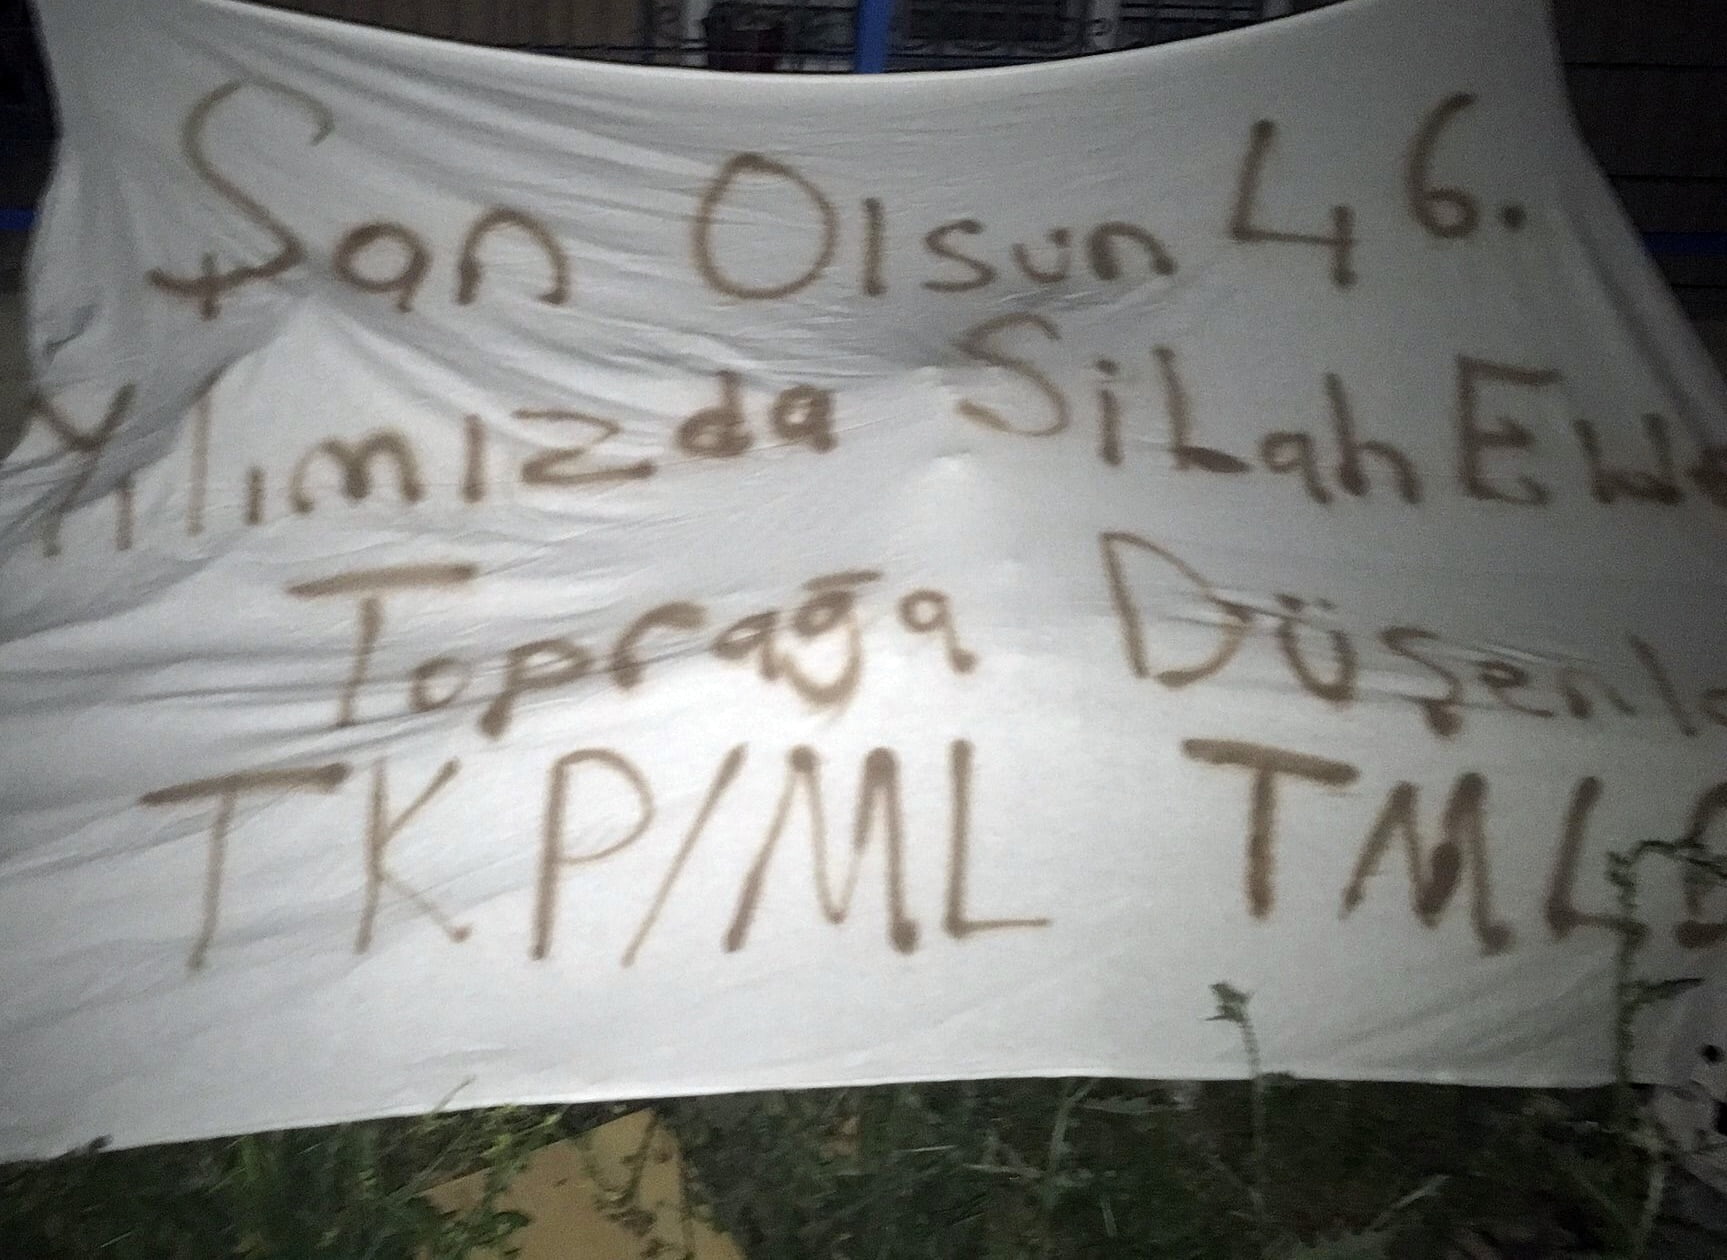 Şan Olsun 46.
Yılımızda SiLah
Toprağa Düşenle
TKP/ML TMLG